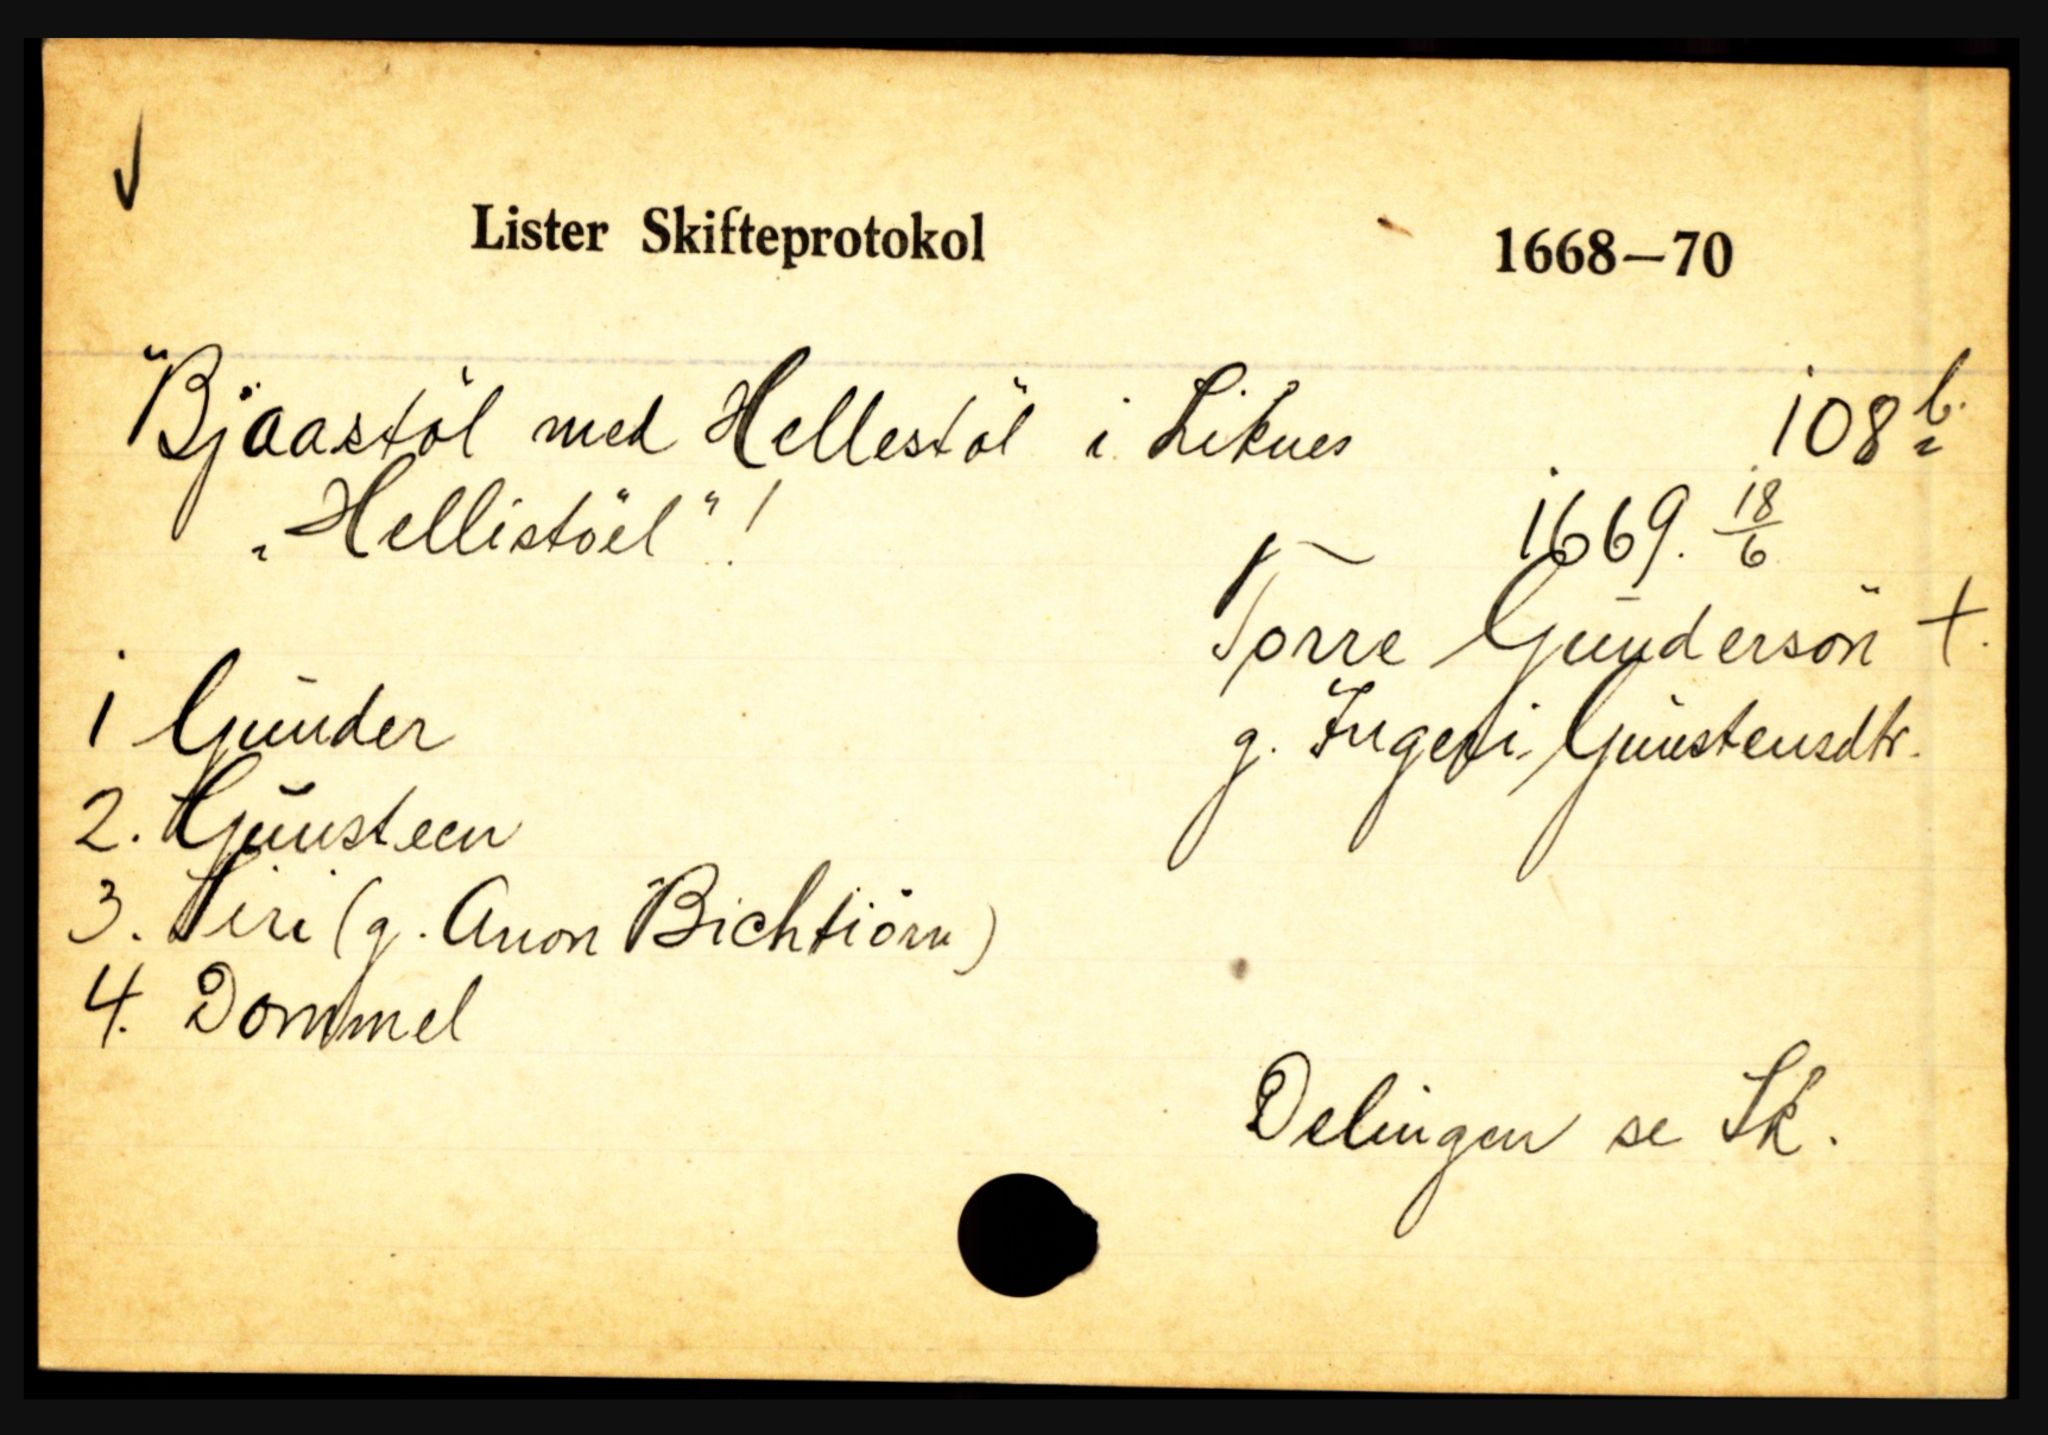 Lister Skifteprotokol 1668—70
Bjaastöl med Hellestöl i Liknes 108 b.
„Hellistöel"! 1669. 18/6
Torre Gunderson +.
1 Gunder g. Ingeri Gunstensdtr.
2. Gunsteen
3. Siri (g. Anon Bichtiörn)
4. Dommel
Delingen se Sk.